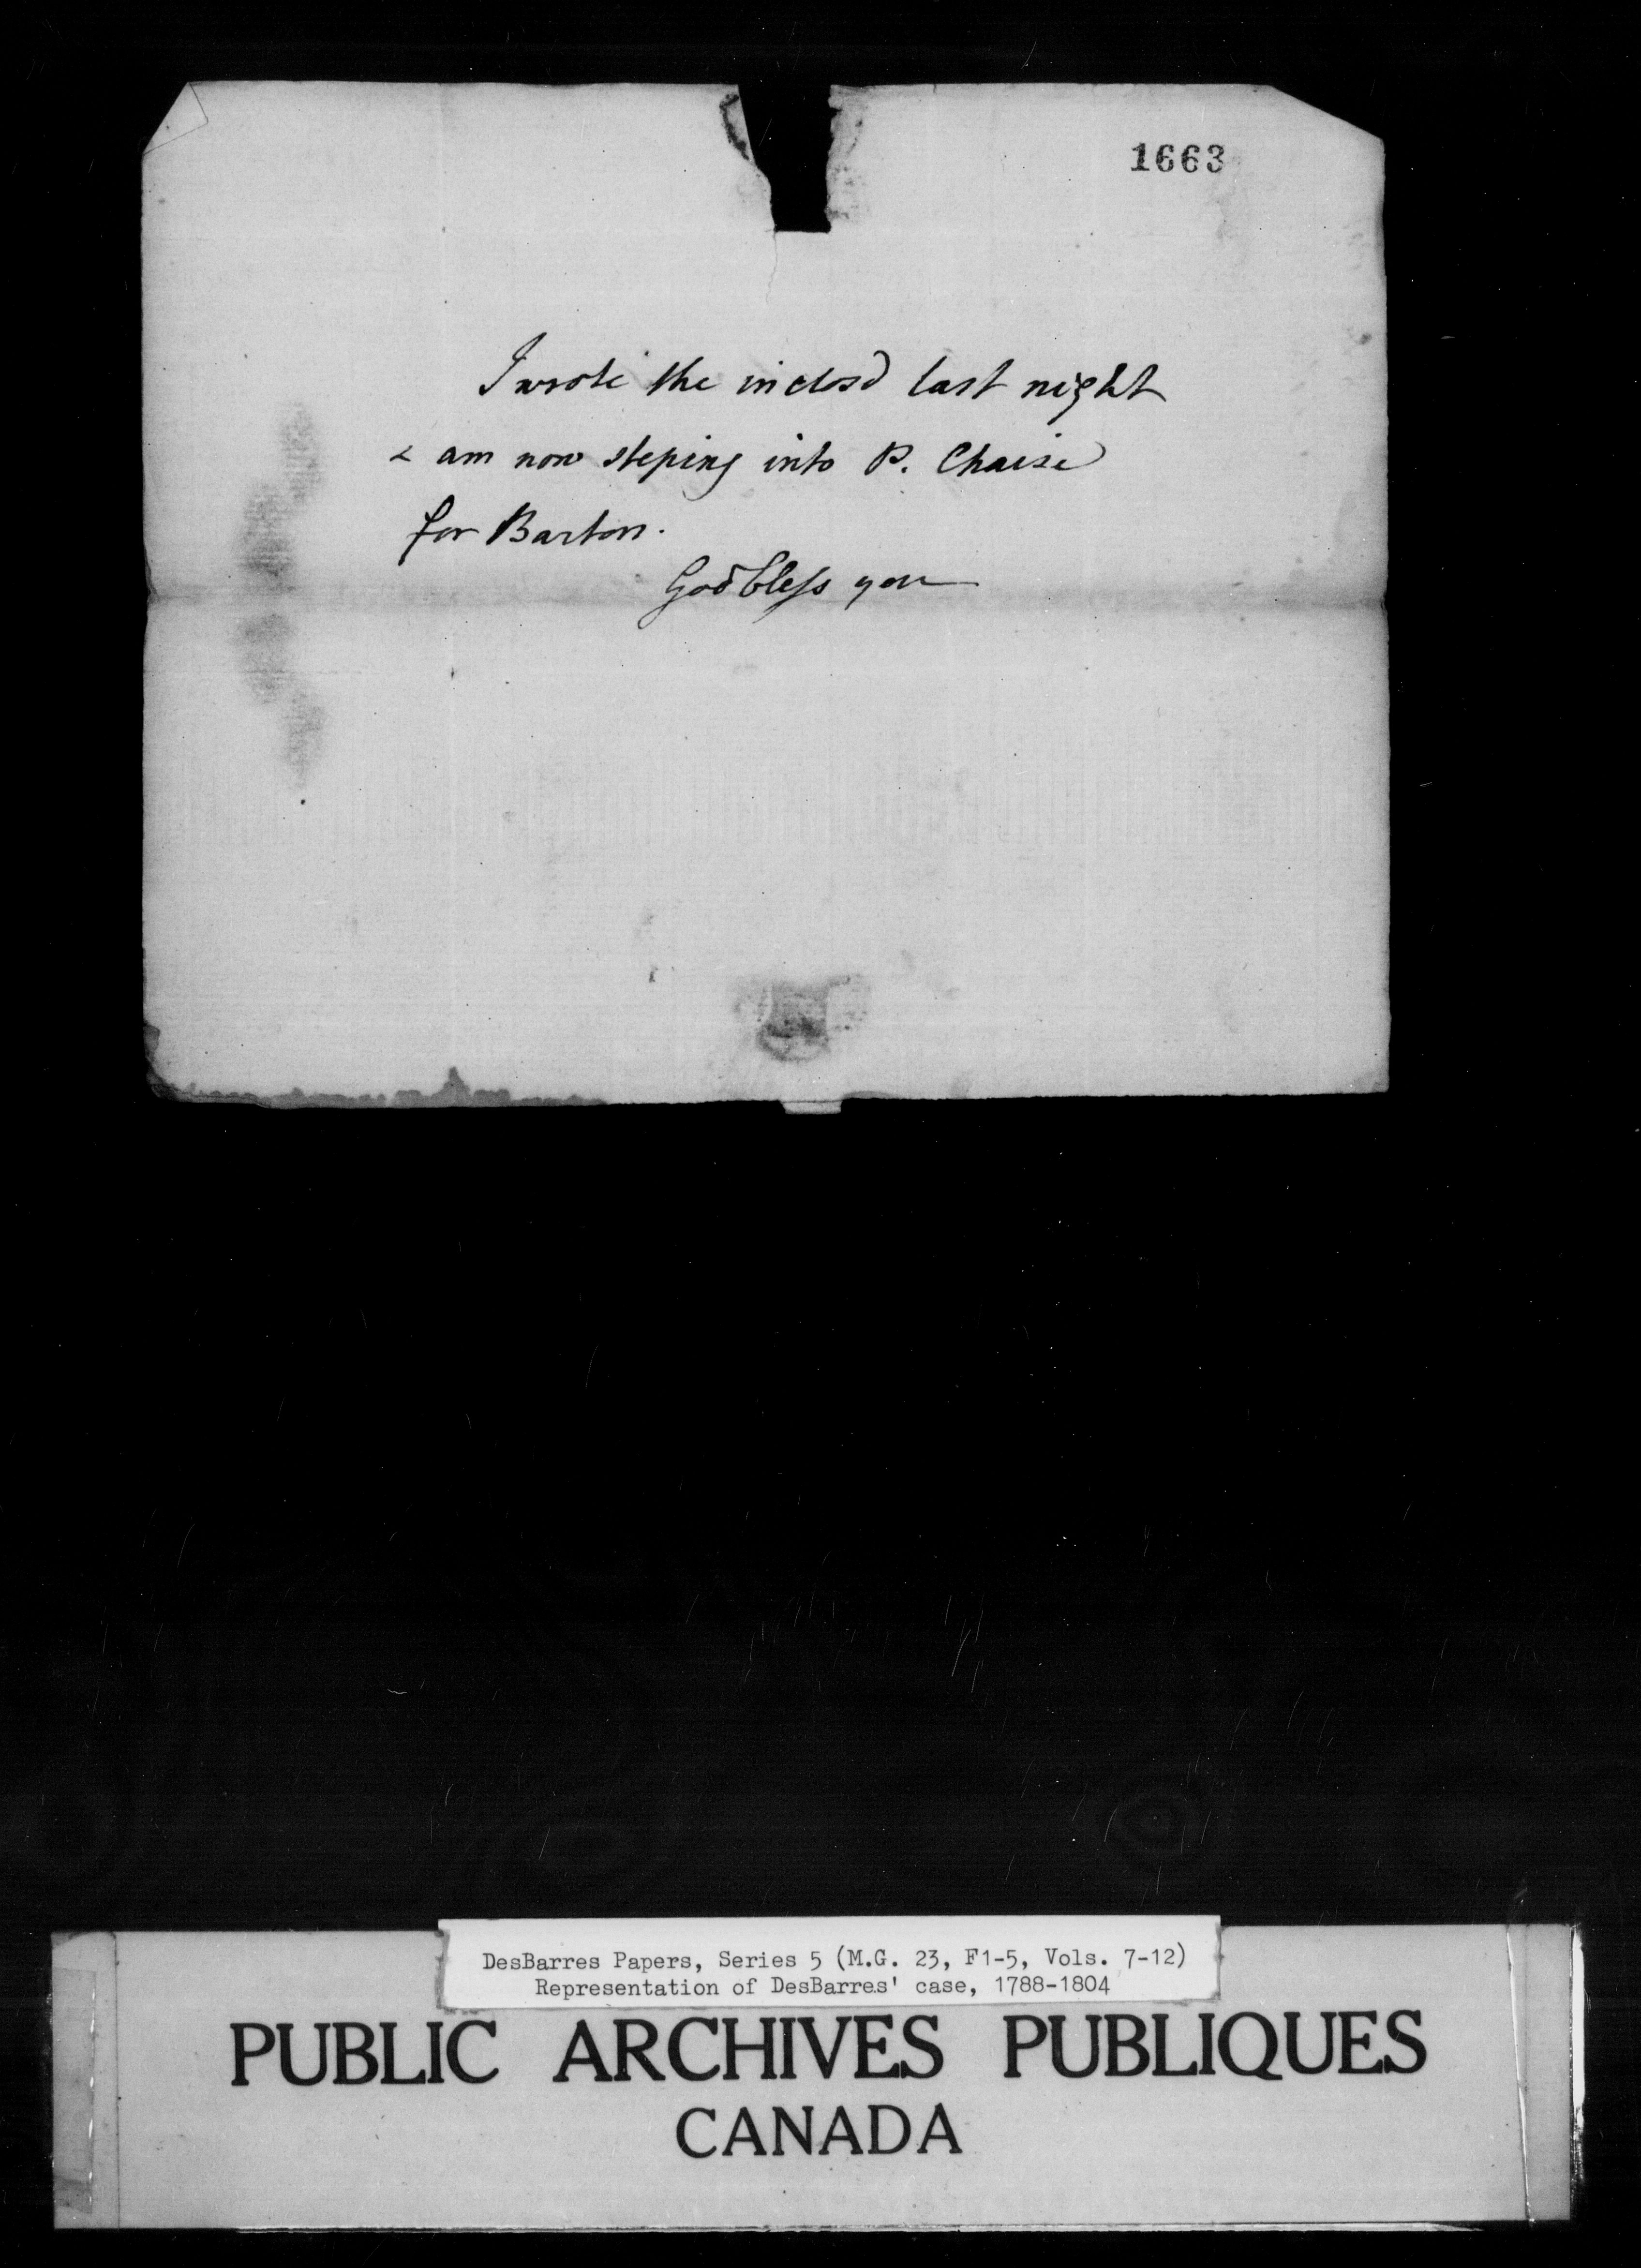 1663
I wrote the inclosd last night
& am now steping into P. Chaise
for Barton.
God bless you
DesBarres Papers, Series 5 (M.G. 23, F1-5, Vols. 7-12)
Representation of DesBarres' case, 1788-1804
PUBLIC ARCHIVES PUBLIQUES
CANADA